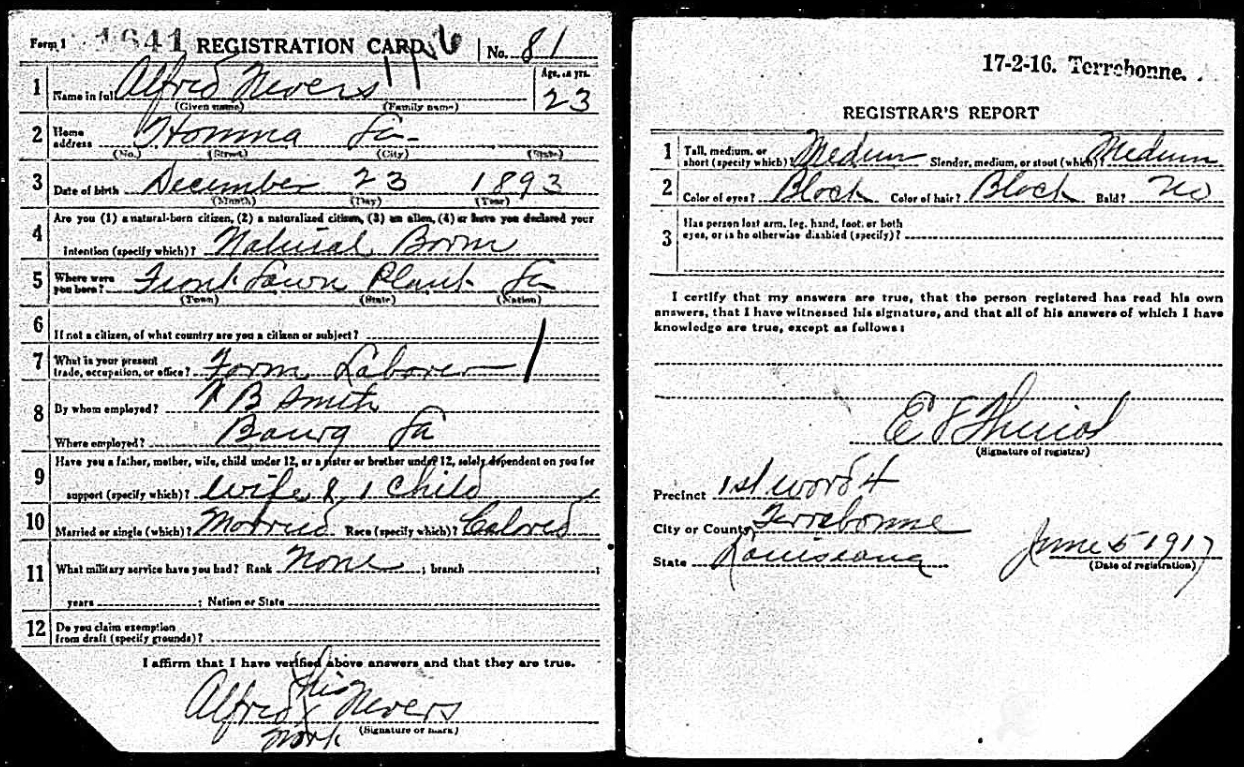 Form 1 1641 REGISTRATION CARD No. 81
1 Name in full Alfred Nevers Age, in yrs. 23
(Given name) (Family name)
2 Home address Homma La-
(No.) (Street) (City) (State)
3 Date of birth December 23 1893
(Month) (Day) (Year)
Are you (1) a natural-born citizen, (2) a naturalized citizen, (3) an alien, (4) or have you declared your
4 intention (specify which)? Natural Born
5 Where were you born? Front Lawn Plant La
(Town) (State) (Nation)
6 If not a citizen, of what country are you a citizen or subject?
7 What is your present trade, occupation, or office? Farm Laborer
8 By whom employed? B Smith
Where employed? Bourg La
9 Have you a father, mother, wife, child under 12, or a sister or brother under 12, solely dependent on you for
support (specify which)? wife & 1 Child
10 Married or single (which)? Married Race (specify which)? Colored
11 What military service have you had? Rank None ; branch ;
years ; Nation or State
12 Do you claim exemption from draft (specify grounds)?
I affirm that I have verified above answers and that they are true.
his
Alfred X Nevers
mark (Signature or mark)
17-2-16. Terrebonne.
REGISTRAR'S REPORT
1 Tall, medium, or short (specify which)? Medium Slender, medium, or stout (which)? Medium
2 Color of eyes? Black Color of hair? Black Bald? No
3 Has person lost arm, leg, hand, foot, or both
eyes, or is he otherwise disabled (specify)?
I certify that my answers are true, that the person registered has read his own
answers, that I have witnessed his signature, and that all of his answers of which I have
knowledge are true, except as follows:
(Signature of registrar)
Precinct 1st word 4
City or County Terrebonne
State Louisiana June 5 1917
(Date of registration)